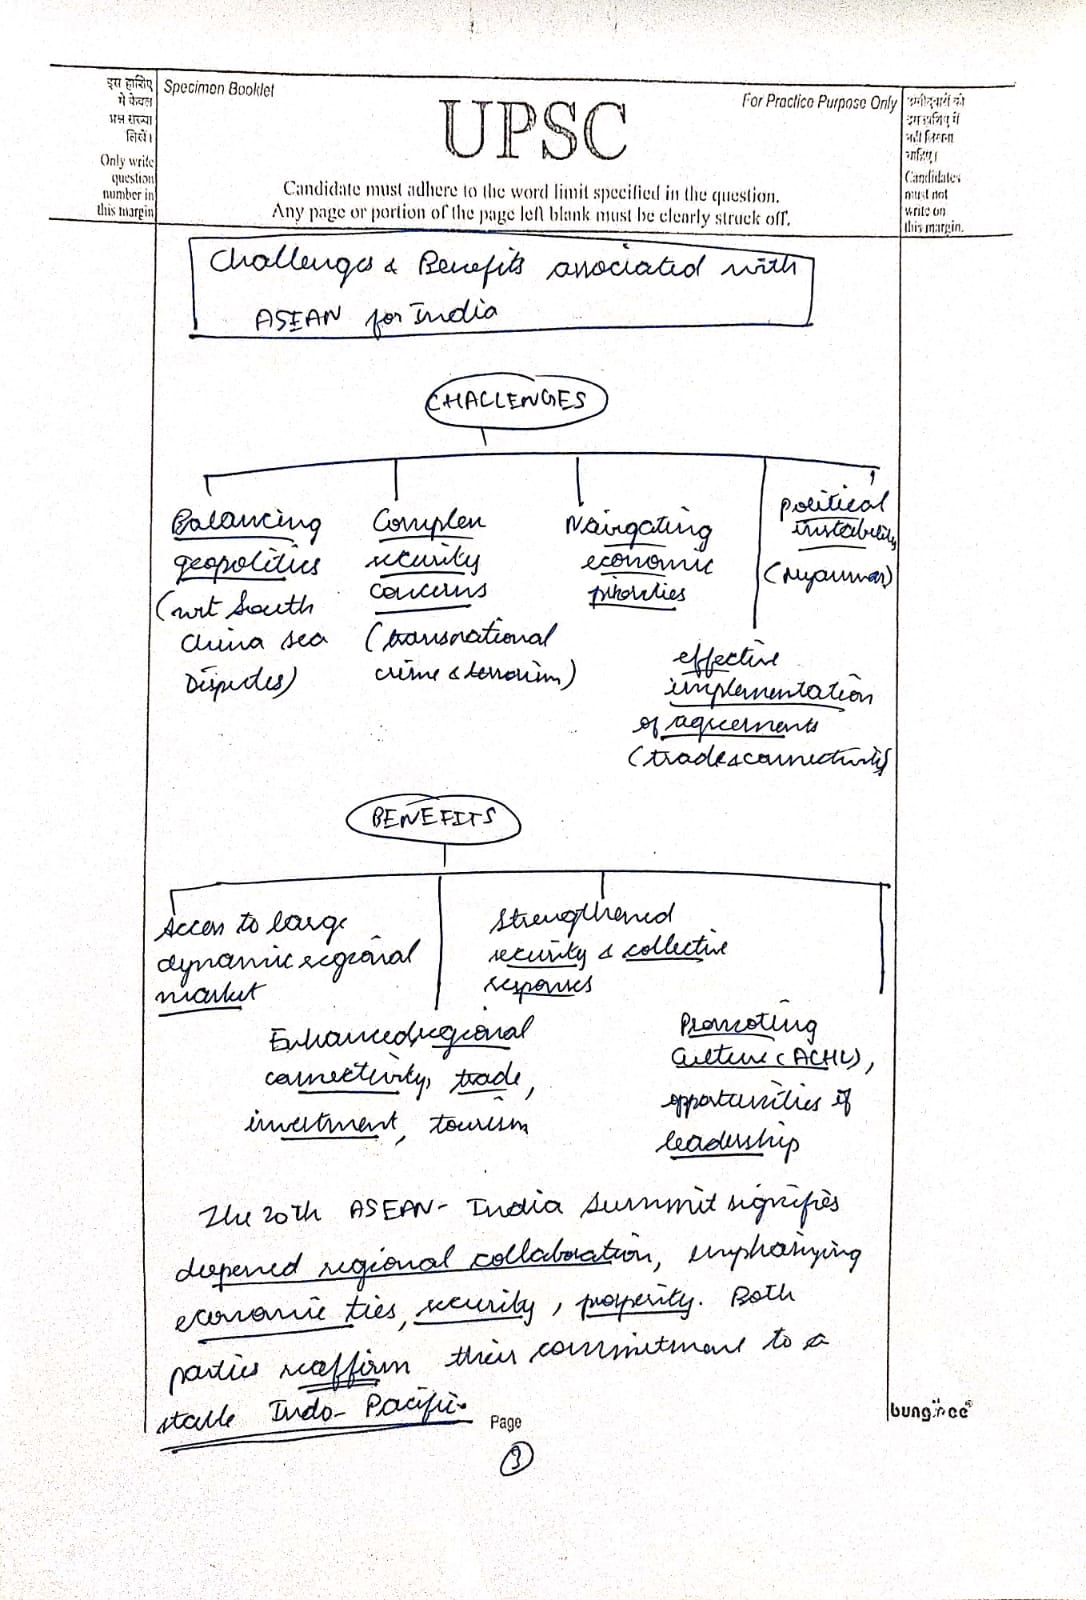 इस हाशिए
में केवल
प्रश्न संख्या
लिखें।
Only write
question
number in
this margin
Specimen Booklet
For Practice Purpose Only
UPSC
Candidate must adhere to the word limit specified in the question.
Any page or portion of the page left blank must be clearly struck off.
उम्मीदवारों को
इस हाशिए में
नहीं लिखना
चाहिए।
Candidates
must not
write on
this margin.
Challenges & Benefits associated with
ASEAN for India
CHALLENGES
Balancing
geopolitics
(wrt South
China sea
Disputes)
Complex
security
concerns
(transnational
crime & terrorism)
Navigating
economic
priorities
effective
implementation
of agreements
(trade & connectivity)
Political
instability
(Myanmar)
BENEFITS
Access to large
dynamic regional
market
Enhanced regional
connectivity, trade,
investment, tourism
Strengthened
security & collective
responses
Promoting
Culture (ACHL),
opportunities of
leadership
The 20th ASEAN- India Summit signifies
deepened regional collaboration, emphasizing
economic ties, security, prosperity. Both
parties reaffirm their commitment to a
stable Indo-Pacific.
Page
3
bung